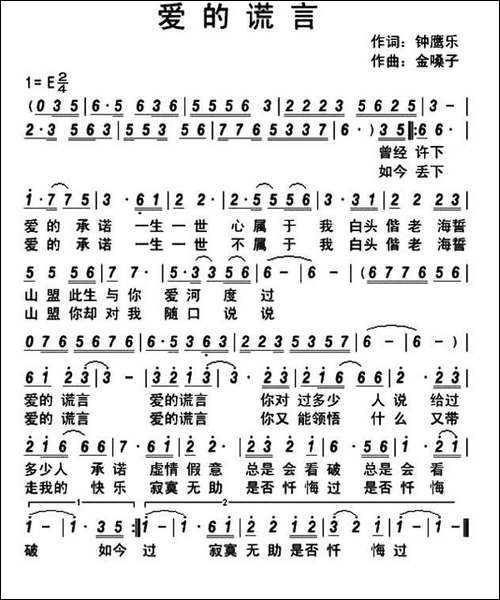 爱的谎言
作词：钟鹰乐
作曲：金嗓子
1=E 2/4
(0 3 5 | 6· 5 6 3 6 | 5 5 5 6 3 | 2 2 2 3 5 6 2 5 | 3 - |
2· 3 5 6 3 | 5 1 3 2 | 7 7 6 5 3 3 7 | 6· ) 3 5 |: 6 6· |
曾经 许下
如今 丢下
1· 7 7 5 | 3· 6 1 | 2 2· | 2 2 5 6 | 3· 1 | 2 2 2 3 |
爱的 承诺 一生一世 心属于 我 白头偕老 海誓
爱的 承诺 一生一世 不属于 我 白头偕老 海誓
5 5 5 6 | 7 7· | 5· 3 3 5 | 6 - | 6 - | (6 7 7 6 5 6 |
山盟此生与你 爱河 度过
山盟你却对我 随口 说说
0 7 6 5 6 7 6 | 6· 5 3 6 3 | 2 2 2 3 5 3 5 7 | 6 - | 6 - ) |
6 1 2 3 | 3 - | 3 2 1 3 | 3 - | 2 1 6 6 6 | 2· 2 3 |
爱的谎言 爱的谎言 你对过多少 人说给过
爱的谎言 爱的谎言 你又能领悟 什么又带
2 1 6 6 | 7· 6 1 | 5 5 | 3 2 1 2 | 3· 2 2 | 2 1 2 3 |
多少人 承诺 虚情假意 总是会看破 总是会看
走我的 快乐 寂寞无助 是否忏悔过 是否忏悔
1 2
1 - | 1· 3 5 :| 1 - | 1· 6 1 | 5 5 2 1 | 3 2 2 | 1 - | 1 - ||
破 如今过 寂寞无助是否忏 悔过